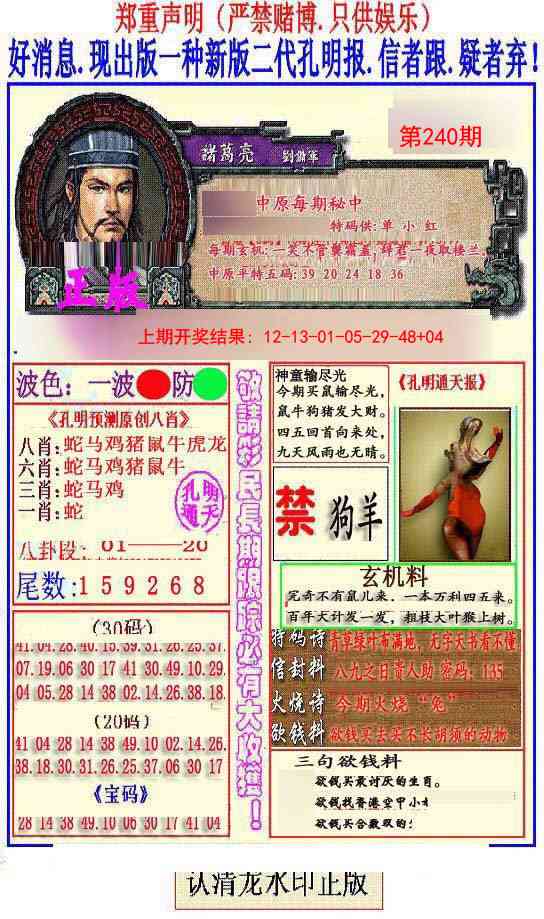 郑重声明（严禁赌博.只供娱乐）
好消息.现出版一种新版二代孔明报.信者跟.疑者弃!
諸葛亮 劉備軍
第240期
中原每期秘中
特码供:单 小 红
每期玄机:一笑不管襄霜盖,拜君一夜取楼兰。
中原平特五码:39 20 24 18 36
正版
上期开奖结果: 12-13-01-05-29-48+04
波色：一波 防
《孔明预测原创八肖》
八肖:蛇马鸡猪鼠牛虎龙
六肖:蛇马鸡猪鼠牛
三肖:蛇马鸡
一肖:蛇
孔明
通天
八卦段: 01——20
尾数:159268
敬請彩民長期跟踪必有大收獲!
神童输尽光
今期买鼠输尽光,
鼠牛狗猪发大财。
四五回首向来处,
九天风雨也无晴。
《孔明通天报》
禁 狗羊
玄机料
完奇不有鼠儿来, 一本万利四五来。
百年大计发一发, 粗枝大叶猴上树。
(30码)
41.04.28.40.15.39.31.26.25.37
07.19.06 30 17 41 30.49.10.29
04 05.28 14 38 02.14.26.38.18.
(20码)
41 04 28 14 38 49.10 02.14.26.
38.18.30.31.26.25.37.06 30 17
《宝码》
28 14 38 49.10 06 30 17 41 04
特码诗 青草绿叶布满地, 无字天书看不懂
信封料 八九之日贵人助 密码: 135
火烧诗 今期火烧“兔”
欲钱料 欲钱买去买不长胡须的动物
三句欲钱料
欲钱买最讨厌的生肖。
欲钱找香港空甲小
欲钱买合数双的:
认清龙水印正版